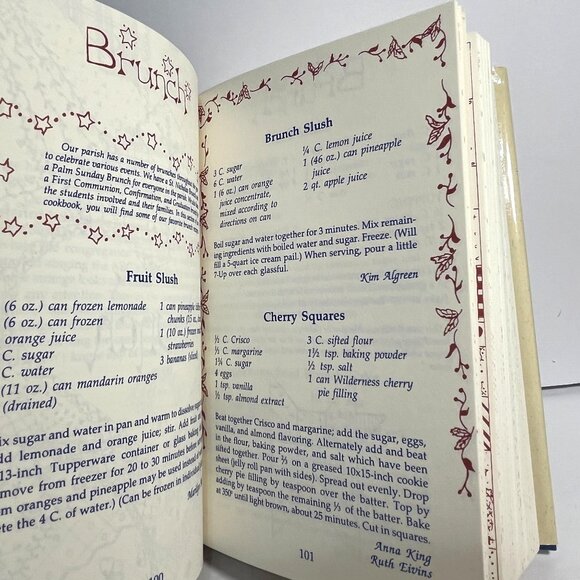 Brunch
Our parish has a number of brunches throughout
to celebrate various events. We have a St. Nicholas
a Palm Sunday Brunch for everyone in the
a First Communion, Confirmation, and
the students involved and their families. In this
cookbook, you will find some of our favorite
Fruit Slush
(6 oz.) can frozen lemonade
(6 oz.) can frozen
orange juice
C. sugar
C. water
(11 oz.) can mandarin oranges
(drained)
1 can pineapple
chunks (15
1 (10 oz.) frozen
strawberries
3 bananas
sugar and water in pan and warm to dissolve
add lemonade and orange juice; stir. Add fruit
13-inch Tupperware container or glass baking
move from freezer for 20 to 30 minutes before
oranges and pineapple may be used instead
the 4 C. of water.) (Can be frozen in
Brunch Slush
3 C. sugar
6 C. water
1 (6 oz.) can orange
juice concentrate,
mixed according to
directions on can
¼ C. lemon juice
1 (46 oz.) can pineapple
juice
2 qt. apple juice
Boil sugar and water together for 3 minutes. Mix remain-
ing ingredients with boiled water and sugar. Freeze. (Will
fill a 5-quart ice cream pail.) When serving, pour a little
7-Up over each glassful.
Kim Algreen
Cherry Squares
½ C. Crisco
½ C. margarine
1¾ C. sugar
4 eggs
1 tsp. vanilla
½ tsp. almond extract
3 C. sifted flour
1½ tsp. baking powder
½ tsp. salt
1 can Wilderness cherry
pie filling
Beat together Crisco and margarine; add the sugar, eggs,
vanilla, and almond flavoring. Alternately add and beat
in the flour, baking powder, and salt which have been
sifted together. Pour ⅔ on a greased 10x15-inch cookie
sheet (jelly roll pan with sides). Spread out evenly. Drop
cherry pie filling by teaspoon over the batter. Top by
adding by teaspoon the remaining ⅓ of the batter. Bake
at 350° until light brown, about 25 minutes. Cut in squares.
Anna King
Ruth Eivins
101